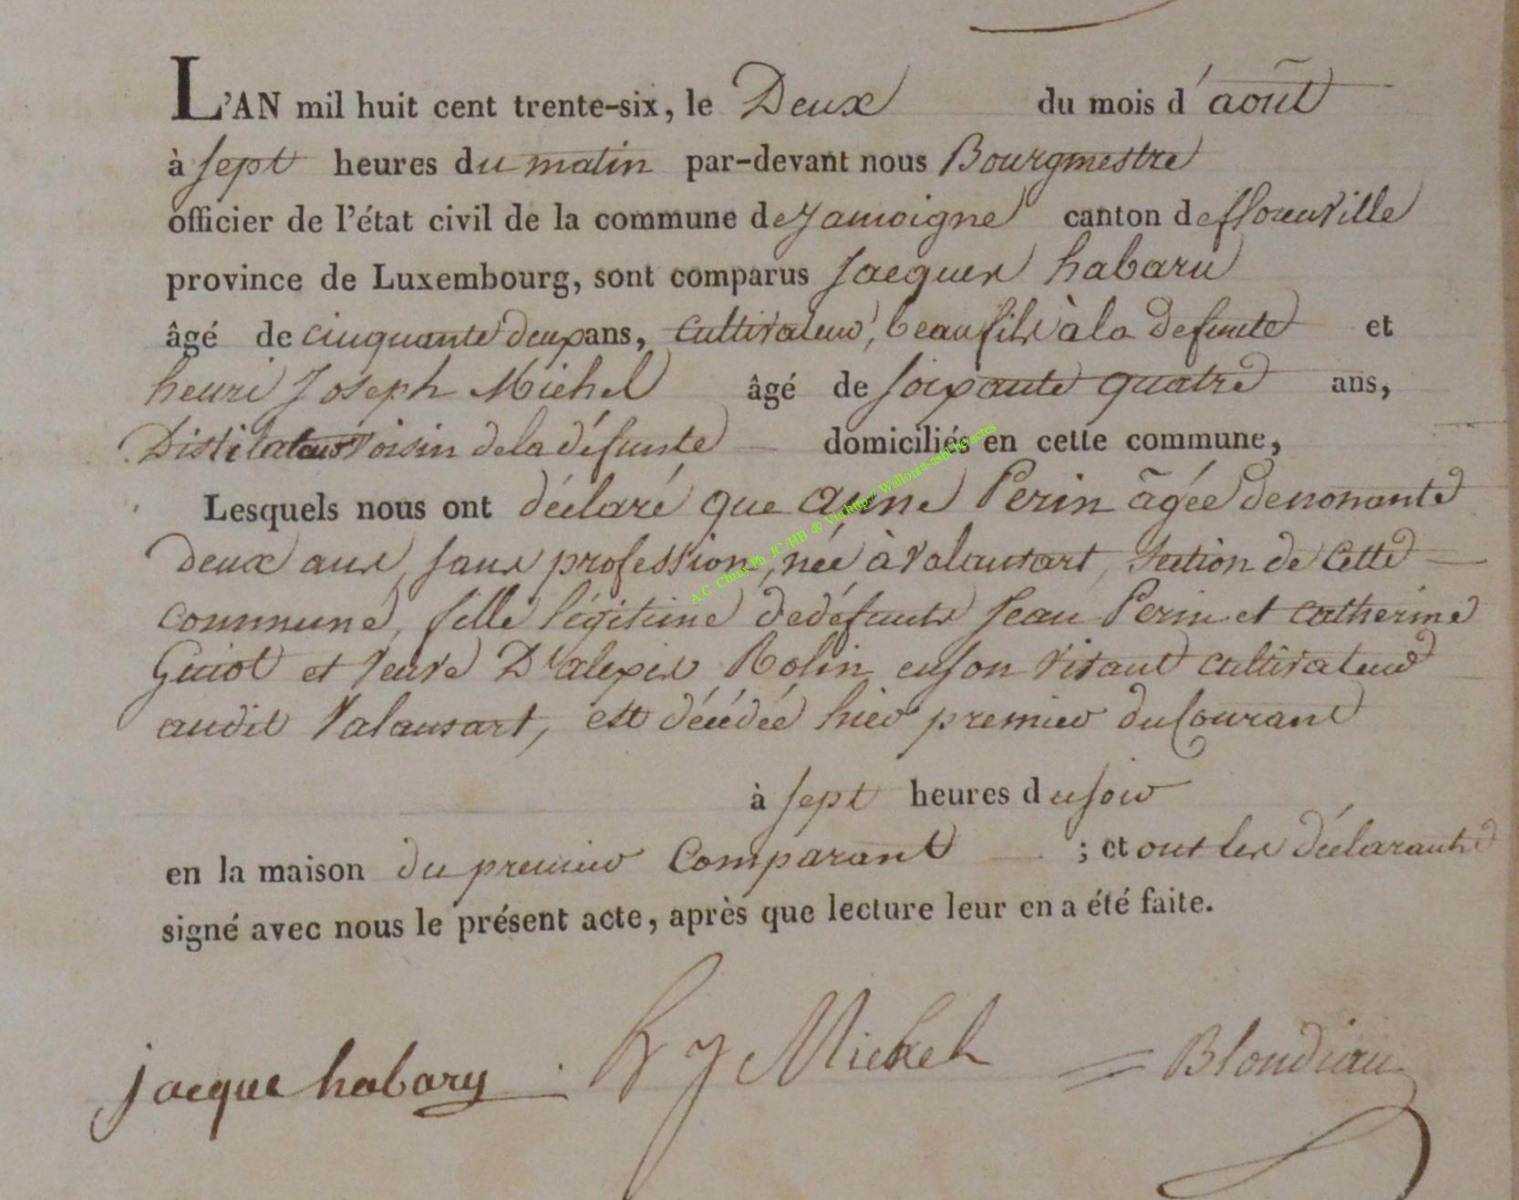 L'AN mil huit cent trente-six, le Deux du mois d'août
à sept heures du matin par-devant nous Bourgmestre
officier de l'état civil de la commune de Jamoigne canton de florenville
province de Luxembourg, sont comparus Jacques habaru
âgé de cinquante deux ans, cultivateur, beau fils à la defunte et
henri Joseph Michel âgé de soixante quatre ans,
Distilateur voisin de la défunte domiciliés en cette commune,
Lesquels nous ont déclaré que anne Perin âgée de nonante
deux ans, sans profession, née à valansart, section de cette
commune, fille légitime de défunts Jean Perin et catherine
Guiot et veuve D'alexis Rolin en son vivant cultivateur
audit Valansart, est décédée hier premier du Courant
à sept heures du soir
en la maison du premier Comparant ; et ont les déclarants
signé avec nous le présent acte, après que lecture leur en a été faite.
jacque habary h j Michel Blondiau